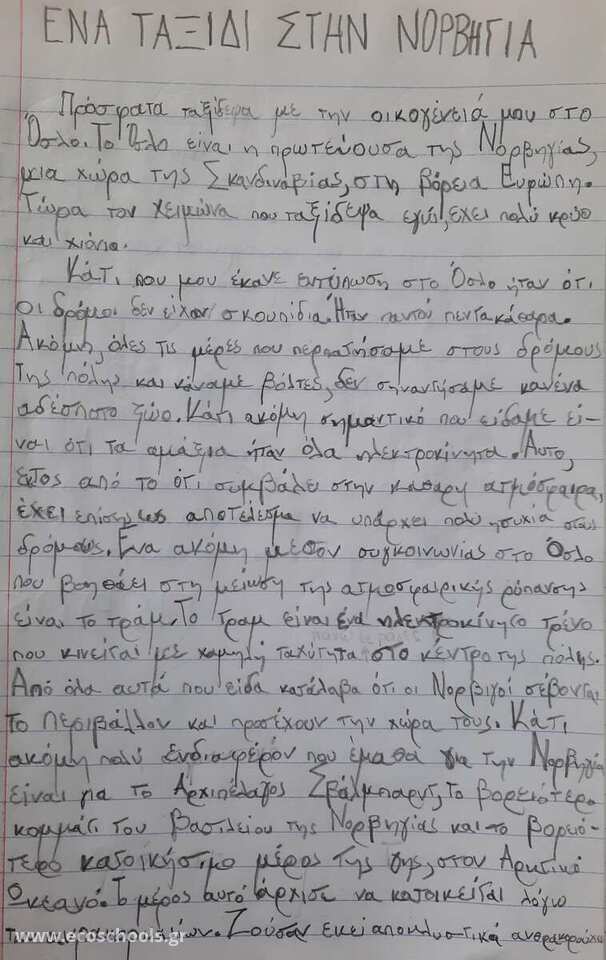 ΕΝΑ ΤΑΞΙΔΙ ΣΤΗΝ ΝΟΡΒΗΓΙΑ
Πρόσφατα ταξίδεψα με την οικογένειά μου στο
Όσλο. Το Όσλο είναι η πρωτεύουσα της Νορβηγίας,
μια χώρα της Σκανδιναβίας, στη βόρεια Ευρώπη.
Τώρα τον χειμώνα που ταξίδεψα εγώ, έχει πολύ κρύο
και χιόνια.
Κάτι που μου έκανε εντύπωση στο Όσλο ήταν ότι
οι δρόμοι δεν είχαν σκουπίδια. Ήταν παντού πεντακάθαρα.
Ακόμη, όλες τις μέρες που περπατήσαμε στους δρόμους
της πόλης και κάναμε βόλτες, δεν συναντήσαμε κανένα
αδέσποτο ζώο. Κάτι ακόμη σημαντικό που είδαμε εί-
ναι ότι τα αμάξια ήταν όλα ηλεκτροκίνητα. Αυτό,
εκτός από το ότι συμβάλει στην καθαρή ατμόσφαιρα,
έχει επίσης ως αποτέλεσμα να υπάρχει πολύ ησυχία στους
δρόμους. Ένα ακόμη μέσον συγκοινωνίας στο Όσλο
που βοηθάει στη μείωση της ατμοσφαιρικής ρύπανσης
είναι το τράμ. Το τραμ είναι ένα ηλεκτροκίνητο τρένο
που κινείται με χαμηλή ταχύτητα στο κέντρο της πόλης.
Από όλα αυτά που είδα κατάλαβα ότι οι Νορβιγοί σέβονται
το περιβάλλον και προσέχουν την χώρα τους. Κάτι
ακόμη πολύ ενδιαφέρον που έμαθα για την Νορβηγία
είναι για το Αρχιπέλαγος Σβάλμπαρντ, το βορειότερο
κομμάτι του Βασιλείου της Νορβηγίας και το βορειό-
τερο κατοικήσιμο μέρος της γης, στον Αρκτικό
Ωκεανό. Το μέρος αυτό άρχισε να κατοικείται λόγω
Ζούσαν εκεί αποκλειστικά ανθρακωρύχοι
www.ecoschools.gr